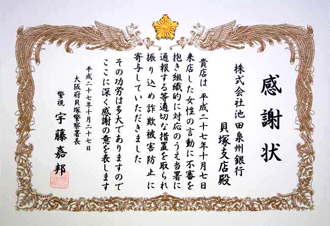 感謝状
株式会社池田泉州銀行
貝塚支店殿
貴店は 平成二十七年十月七日
来店した女性の言動に不審を
抱き組織的に対応のうえ当署に
通報する等適切な措置を取られ
振り込め詐欺被害防止に
寄与していただきました
その功労は多大でありますので
ここに深く感謝の意を表します
平成二十七年十月二十七日
大阪府貝塚警察署長
警視 宇藤嘉邦